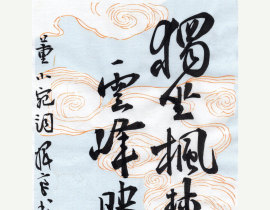 獨坐楓林
雲峰映
董小宛詞